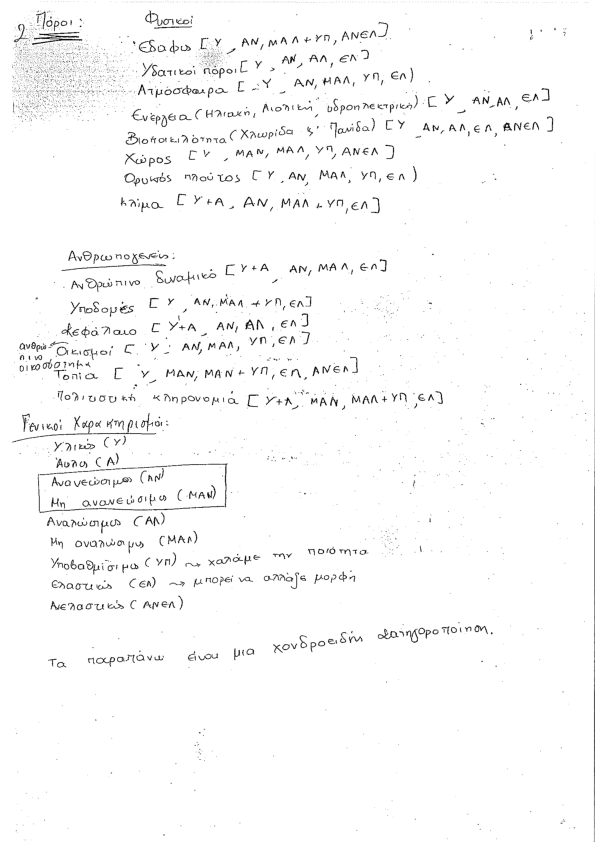 2 Πόροι: Φυσικοί
Έδαφος [Υ, ΑΝ, ΜΑΛ + ΥΠ, ΑΝΕΛ]
Υδατικοί πόροι [Υ, ΑΝ, ΑΛ, ΕΛ]
Ατμόσφαιρα [Υ, ΑΝ, ΜΑΛ, ΥΠ, ΕΛ)
Ενέργεια (Ηλιακή, Αιολική, υδροηλεκτρική) [Υ, ΑΝ, ΑΛ, ΕΛ]
Βιοποικιλότητα (Χλωρίδα & Πανίδα) [Υ, ΑΝ, ΑΛ, ΕΛ, ΑΝΕΛ]
Χώρος [Υ, ΜΑΝ, ΜΑΛ, ΥΠ, ΑΝΕΛ]
Ορυκτός πλούτος [Υ, ΑΝ, ΜΑΛ, ΥΠ, ΕΛ)
κλίμα [Υ+Α, ΑΝ, ΜΑΛ + ΥΠ, ΕΛ]
Ανθρωπογενείς:
Ανθρώπινο δυναμικό [Υ+Α, ΑΝ, ΜΑΛ, ΕΛ]
Υποδομές [Υ, ΑΝ, ΜΑΛ + ΥΠ, ΕΛ]
κεφάλαιο [Υ+Α, ΑΝ, ΑΛ, ΕΛ]
ανθρώπινο οικοσύστημα
Οικισμοί [Υ, ΑΝ, ΜΑΛ, ΥΠ, ΕΛ]
Τοπία [Υ, ΜΑΝ, ΜΑΝ + ΥΠ, ΕΠ, ΑΝΕΛ]
Πολιτιστική κληρονομιά [Υ+Α, ΜΑΝ, ΜΑΛ + ΥΠ, ΕΛ]
Γενικοί Χαρακτηρισμοί:
Υλικός (Υ)
Άυλος (Α)
Ανανεώσιμος (ΑΝ)
Μη ανανεώσιμος (ΜΑΝ)
Αναλώσιμος (ΑΛ)
Μη αναλώσιμος (ΜΑΛ)
Υποβαθμίσιμος (ΥΠ) → χαλάμε την ποιότητα
Ελαστικός (ΕΛ) → μπορεί να αλλάξε μορφή
Ανελαστικός (ΑΝΕΛ)
Τα παραπάνω είναι μια χονδροειδής κατηγοροποίηση.